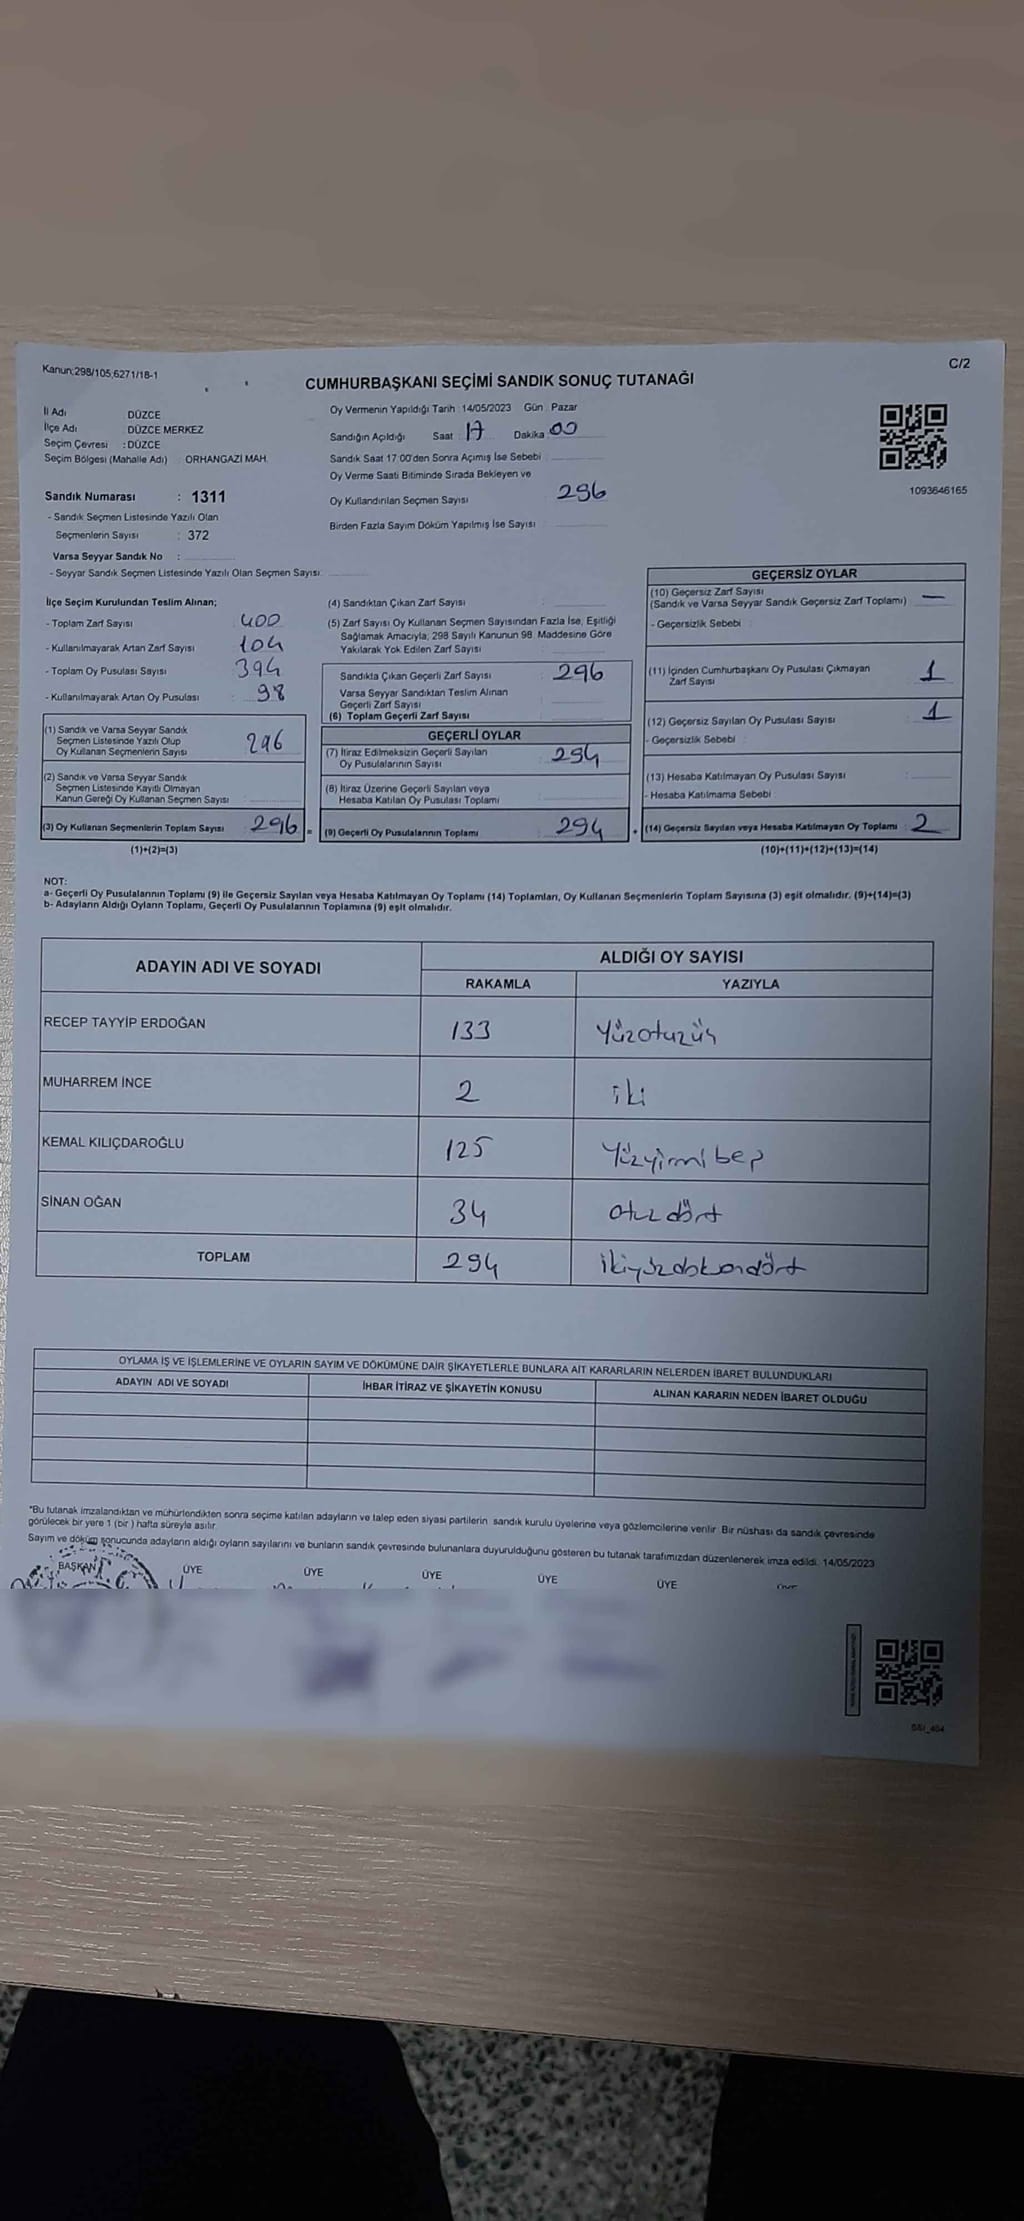 Kanun;298/105;6271/18-1
C/2
CUMHURBAŞKANI SEÇİMİ SANDIK SONUÇ TUTANAĞI
İl Adı DÜZCE
İlçe Adı DÜZCE MERKEZ
Seçim Çevresi : DÜZCE
Seçim Bölgesi (Mahalle Adı) ORHANGAZİ MAH.
Sandık Numarası : 1311
- Sandık Seçmen Listesinde Yazılı Olan
Seçmenlerin Sayısı : 372
Varsa Seyyar Sandık No :
- Seyyar Sandık Seçmen Listesinde Yazılı Olan Seçmen Sayısı:
Oy Vermenin Yapıldığı Tarih : 14/05/2023 Gün : Pazar
Sandığın Açıldığı Saat : 17 Dakika : 00
Sandık Saat 17.00'den Sonra Açımış İse Sebebi :
Oy Verme Saati Bitiminde Sırada Bekleyen ve
Oy Kullandırılan Seçmen Sayısı 296
Birden Fazla Sayım Döküm Yapılmış İse Sayısı :
1093646165
İlçe Seçim Kurulundan Teslim Alınan;
- Toplam Zarf Sayısı : 400
- Kullanılmayarak Artan Zarf Sayısı : 104
- Toplam Oy Pusulası Sayısı : 394
- Kullanılmayarak Artan Oy Pusulası : 98
(1) Sandık ve Varsa Seyyar Sandık
Seçmen Listesinde Yazılı Olup
Oy Kullanan Seçmenlerin Sayısı 296
(2) Sandık ve Varsa Seyyar Sandık
Seçmen Listesinde Kayıtlı Olmayan
Kanun Gereği Oy Kullanan Seçmen Sayısı
(3) Oy Kullanan Seçmenlerin Toplam Sayısı : 296 =
(1)+(2)=(3)
(4) Sandıktan Çıkan Zarf Sayısı :
(5) Zarf Sayısı Oy Kullanan Seçmen Sayısından Fazla İse, Eşitliği
Sağlamak Amacıyla, 298 Sayılı Kanunun 98. Maddesine Göre
Yakılarak Yok Edilen Zarf Sayısı :
Sandıkta Çıkan Geçerli Zarf Sayısı : 296
Varsa Seyyar Sandıktan Teslim Alınan
Geçerli Zarf Sayısı :
(6) Toplam Geçerli Zarf Sayısı :
GEÇERLİ OYLAR
(7) İtiraz Edilmeksizin Geçerli Sayılan
Oy Pusulalarının Sayısı : 294
(8) İtiraz Üzerine Geçerli Sayılan veya
Hesaba Katılan Oy Pusulası Toplamı :
(9) Geçerli Oy Pusulalarının Toplamı : 294 +
GEÇERSİZ OYLAR
(10) Geçersiz Zarf Sayısı
(Sandık ve Varsa Seyyar Sandık Geçersiz Zarf Toplamı) : —
- Geçersizlik Sebebi :
(11) İçinden Cumhurbaşkanı Oy Pusulası Çıkmayan
Zarf Sayısı 1
(12) Geçersiz Sayılan Oy Pusulası Sayısı 1
- Geçersizlik Sebebi :
(13) Hesaba Katılmayan Oy Pusulası Sayısı :
- Hesaba Katılmama Sebebi :
(14) Geçersiz Sayılan veya Hesaba Katılmayan Oy Toplamı : 2
(10)+(11)+(12)+(13)=(14)
NOT:
a- Geçerli Oy Pusulalarının Toplamı (9) ile Geçersiz Sayılan veya Hesaba Katılmayan Oy Toplamı (14) Toplamları, Oy Kullanan Seçmenlerin Toplam Sayısına (3) eşit olmalıdır. (9)+(14)=(3)
b- Adayların Aldığı Oyların Toplamı, Geçerli Oy Pusulalarının Toplamına (9) eşit olmalıdır.
ADAYIN ADI VE SOYADI ALDIĞI OY SAYISI
RAKAMLA YAZIYLA
RECEP TAYYİP ERDOĞAN 133 Yüzotuzüç
MUHARREM İNCE 2 iki
KEMAL KILIÇDAROĞLU 125 Yüzyirmi beş
SİNAN OĞAN 34 otuz dört
TOPLAM 294 ikiyüzdoksandört
OYLAMA İŞ VE İŞLEMLERİNE VE OYLARIN SAYIM VE DÖKÜMÜNE DAİR ŞİKAYETLERLE BUNLARA AİT KARARLARIN NELERDEN İBARET BULUNDUKLARI
ADAYIN ADI VE SOYADI İHBAR İTİRAZ VE ŞİKAYETİN KONUSU ALINAN KARARIN NEDEN İBARET OLDUĞU
*Bu tutanak imzalandıktan ve mühürlendikten sonra seçime katılan adayların ve talep eden siyasi partilerin sandık kurulu üyelerine veya gözlemcilerine verilir. Bir nüshası da sandık çevresinde
görülecek bir yere 1 (bir) hafta süreyle asılır.
Sayım ve döküm sonucunda adayların aldığı oyların sayılarını ve bunların sandık çevresinde bulunanlara duyurulduğunu gösteren bu tutanak tarafımızdan düzenlenerek imza edildi. 14/05/2023
BAŞKAN ÜYE ÜYE ÜYE ÜYE ÜYE ÜYE